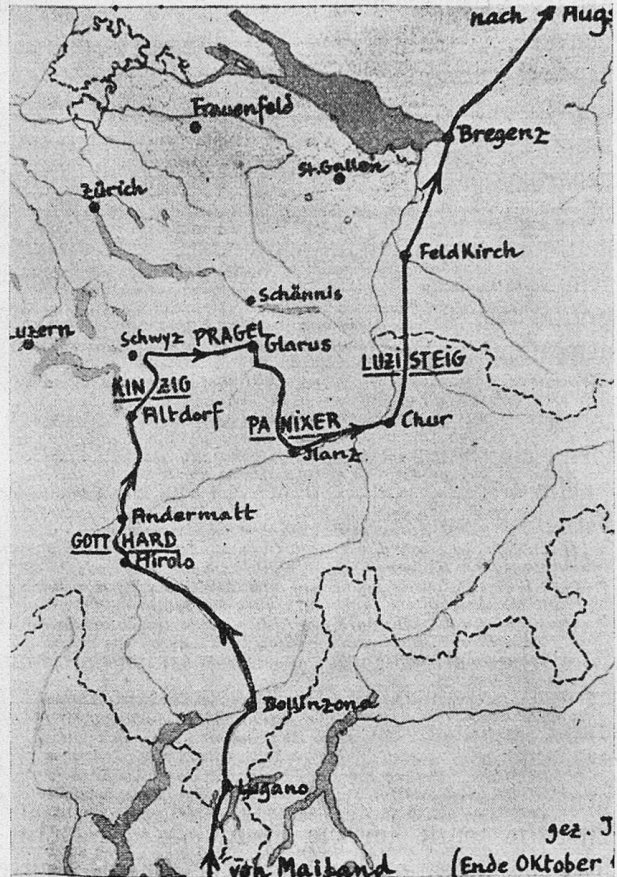 nach
Frauenfeld
Bregenz
St. Gallen
Zürich
FeldKirch
Schännis
uzern
Schwyz PRAGEL
Glarus
LUZI STEIG
KIN ZIG
Altdorf
PANIXER
Chur
Ilanz
Andermatt
GOTT HARD
Airolo
Bellinzona
Lugano
gez.
von Mailand
(Ende Oktober